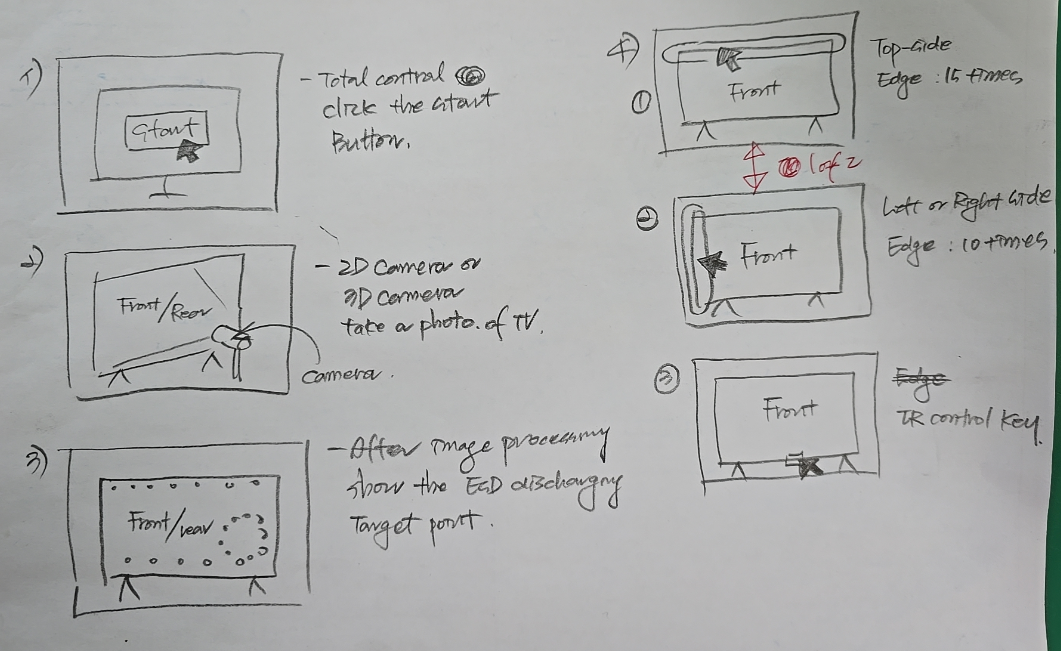 1)
Start
- Total control
click the Start
Button.
2)
Front/Rear
- 2D Camera or
3D Camera
take a photo. of TV.
Camera.
3)
Front/rear
- After image processing
show the ESD discharging
Target point.
4)
①
Front
Top-side
Edge : 15 times
1 of 2
②
Front
Left or Right side
Edge : 10 times
③
Front
Edge
IR control key.